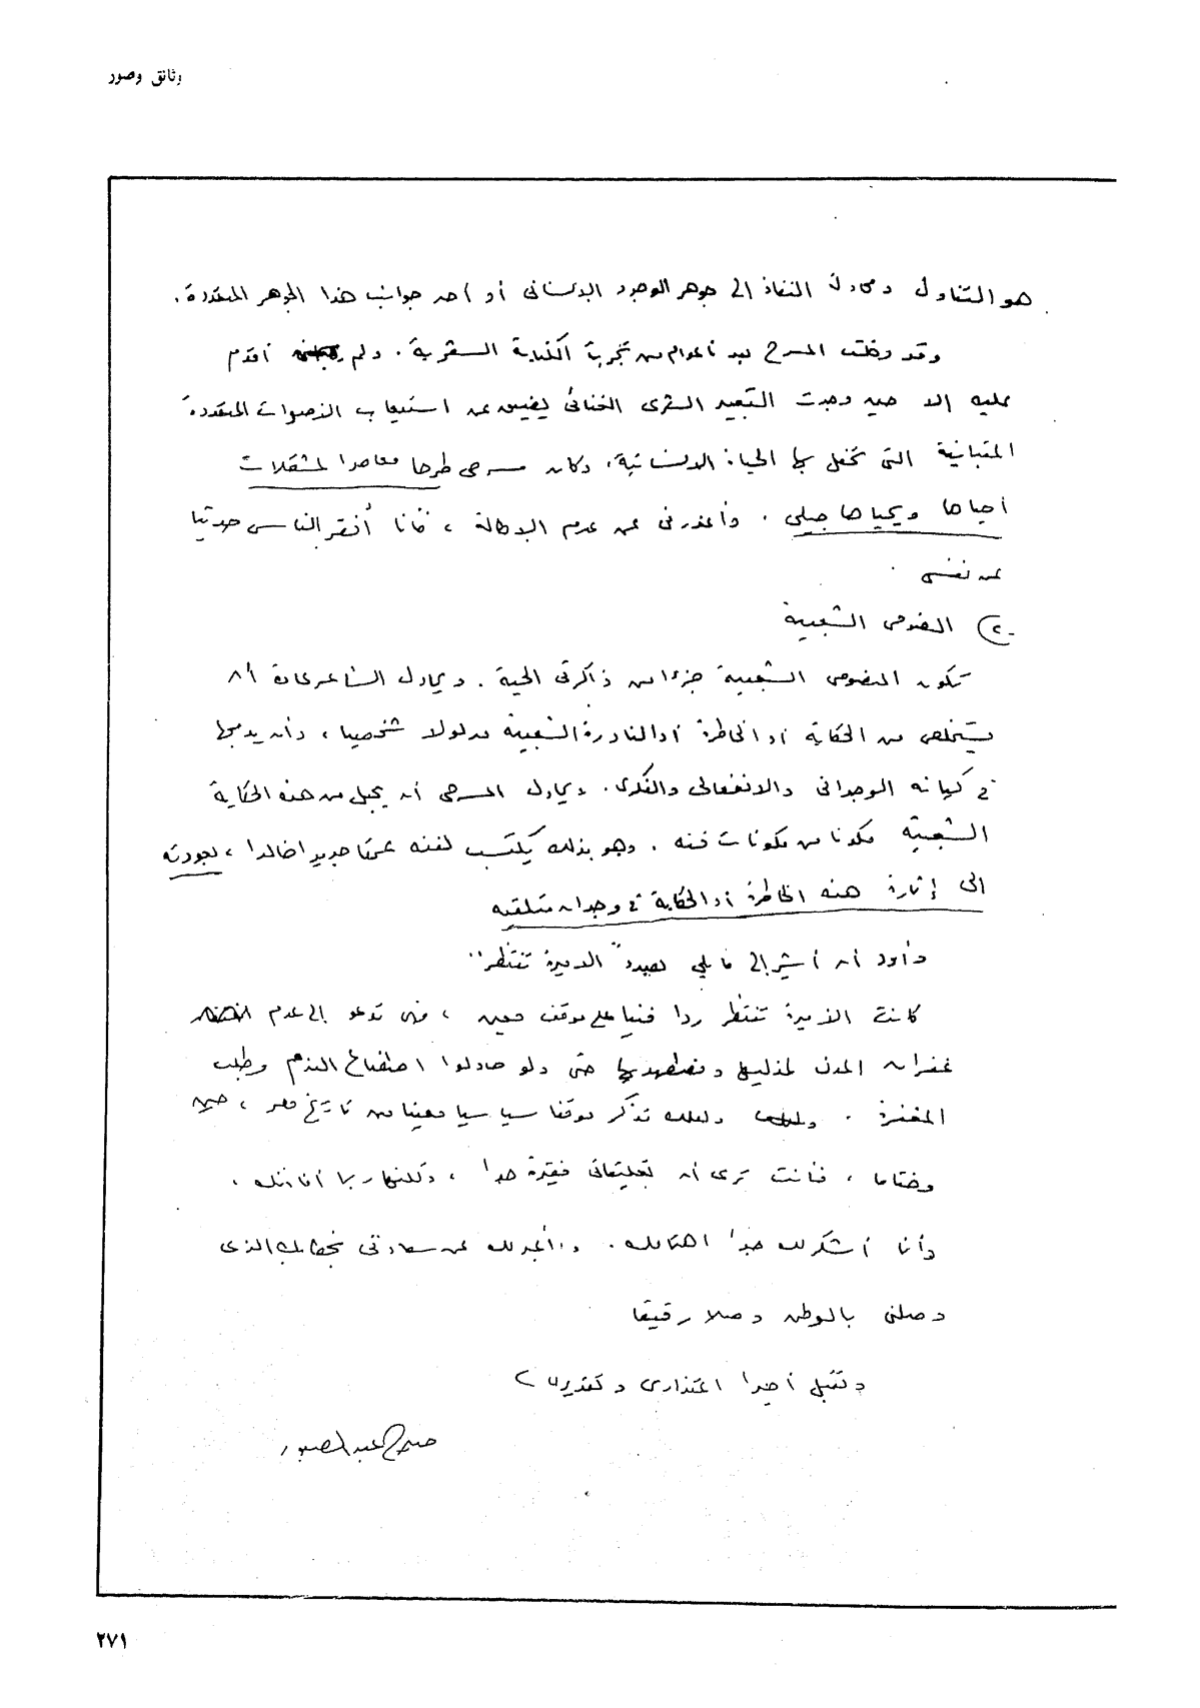 وثائق وصور
هو التناول ومحاولة النفاذ الى جوهر الوجود الإنسانى أو أحد جوانب هذا الجوهر المتعددة.
وقد دخلت المسرح بعد أعوام من تجربة الكتابة الشعرية. ولم أقدم
عليه إلا حين وجدت التعبير الشعرى الغنائى يضيق عن استيعاب الأصوات المتعددة
المتباينة التى تحفل بها الحياة الانسانية، وكان مسرحى طرحا معاصرا لمشكلات
أحياها ويحياها جيلى. وأعذرنى عن عدم الإطالة، فأنا أفقر الناس حديثا
عن نفسى.
٢) النصوص الشعبية
تكون النصوص الشعبية جزءا من ذاكرتى الحية. ويحاول الشاعر عادة أن
يستخلص من الحكاية أو الخاطرة أو النادرة الشعبية مدلولا شخصيا، وأن يدمجها
فى كيانه الوجدانى والانفعالى والفكرى. ويحاول المسرحى أن يجعل من هذه الحكاية
الشعبية مكونا من مكونات فنه. وهو بذلك يكتسب لفنه عمقا جديدا خالدا،
الى إثارة هذه الخاطرة أو الحكاية فى وجدان متلقيه
وأود أن أشير الى ما يلى بصدد "الاميرة تنتظر"
كانت الأميرة تنتظر ردا فنيا على موقف معين، فهى تدعو الى عدم
غفران المدن لمذليها ومضطهديها حتى ولو حاولوا اصطناع الندم وطلب
المغفرة. ولعلك تذكر موقفا سياسيا معينا من تاريخ مصر، حين
وختاما، فأنت ترى أن تعليقاتى فقيرة جدا، ولكنها ربما أفادتك.
وأنا أشكر لك جدا اهتمامك. و عن سعادتى بخطابك الذى
وصلنى بالوطن وصلا رقيقا
وتقبل أخيرا اعتذارى وتقديرى
صلاح عبد الصبور
٢٧١